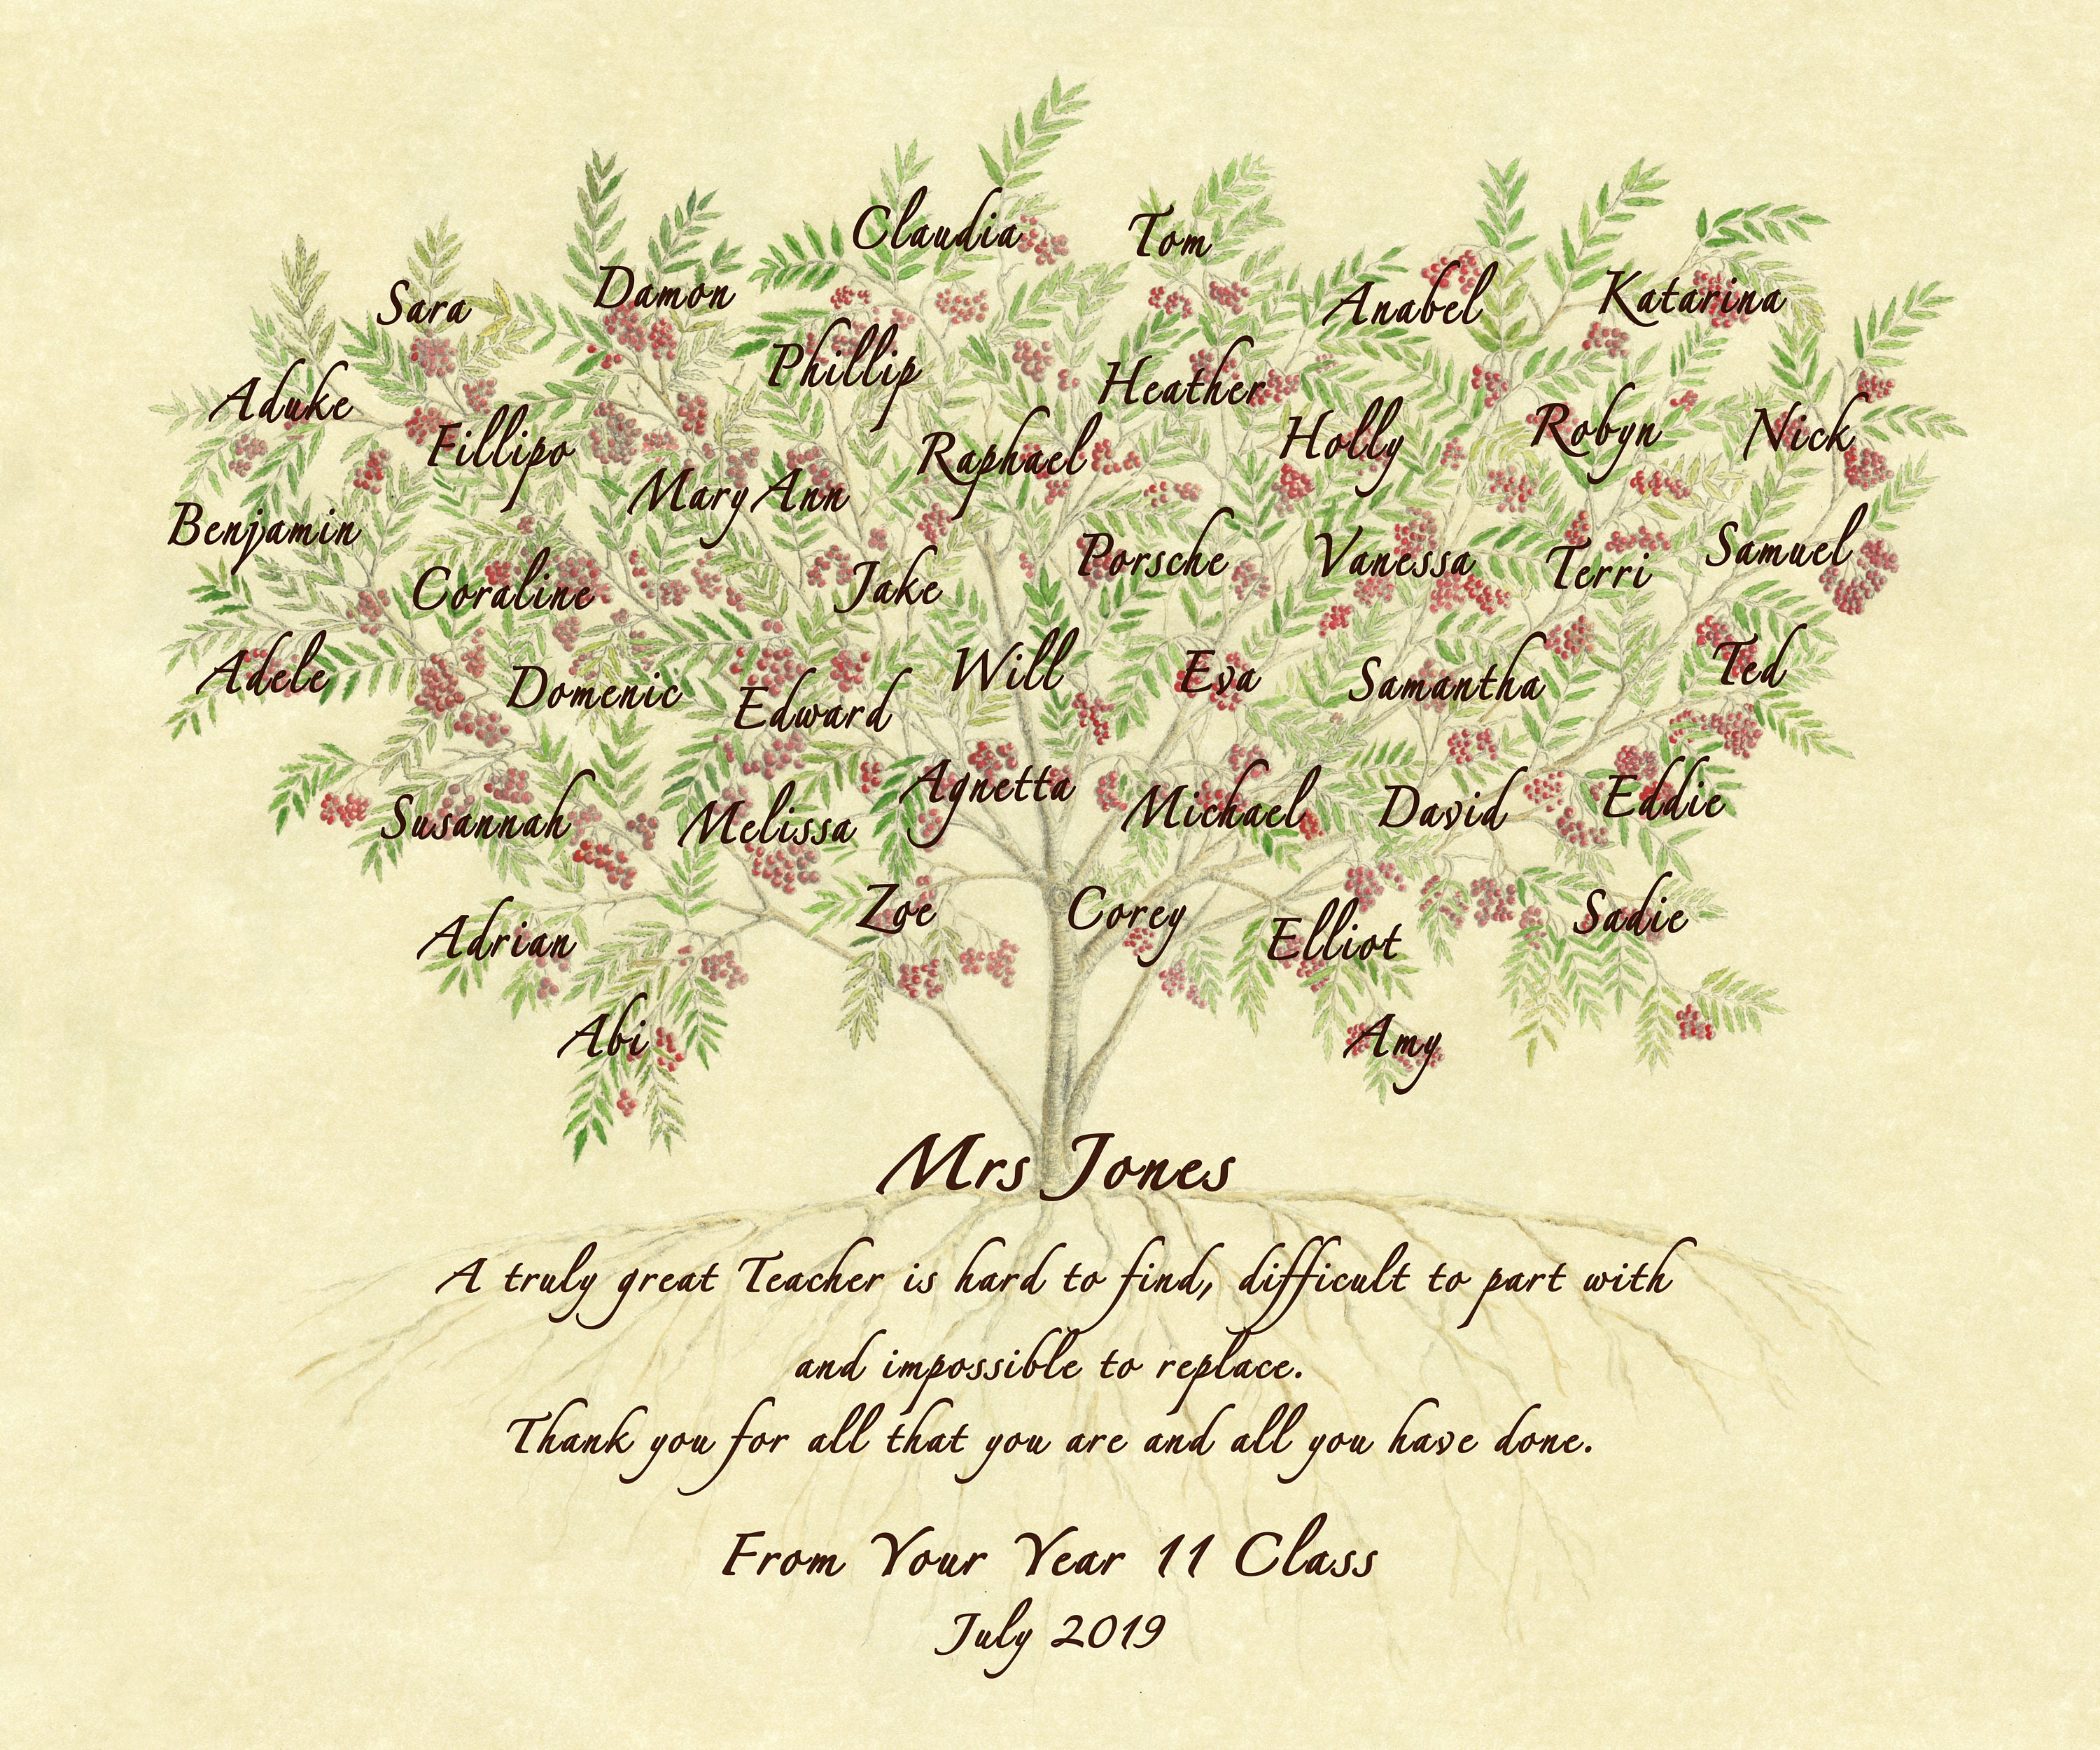 Claudia
Tom
Sara
Damon
Anabel
Katarina
Phillip
Aduke
Heather
Fillipo
Raphael
Holly
Robyn
Nick
Mary Ann
Benjamin
Coraline
Jake
Porsche
Vanessa
Terri
Samuel
Adele
Domenic
Edward
Will
Eva
Samantha
Ted
Susannah
Melissa
Agnetta
Michael
David
Eddie
Adrian
Zoe
Corey
Elliot
Sadie
Abi
Amy
Mrs Jones
A truly great Teacher is hard to find, difficult to part with
and impossible to replace.
Thank you for all that you are and all you have done.
From Your Year 11 Class
July 2019